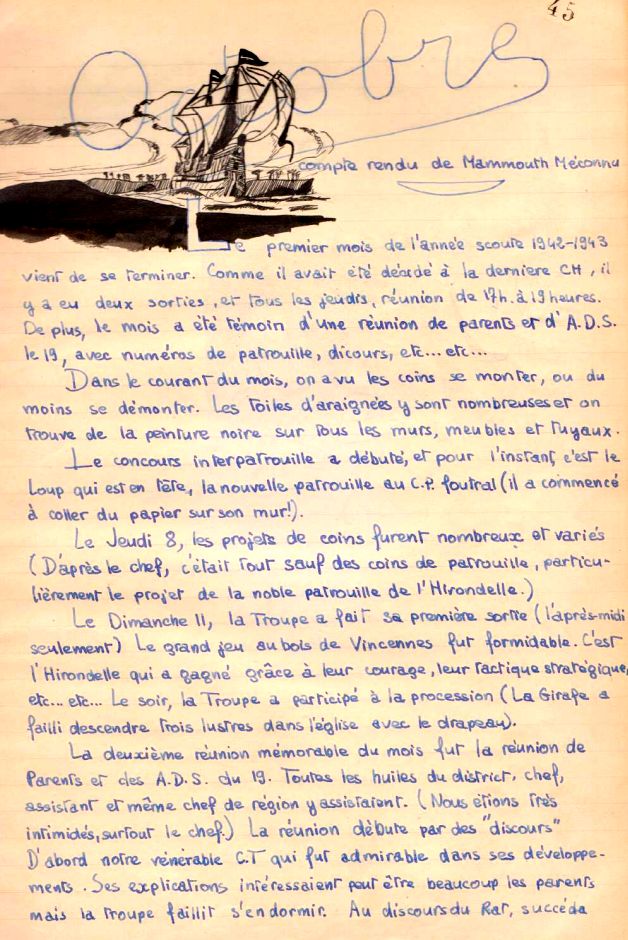 45
Octobre
compte rendu de Mammouth Méconnu
Le premier mois de l'année scoute 1942-1943
vient de se terminer. Comme il avait été décidé à la derniere CH, il
y a eu deux sorties, et tous les jeudis, réunion de 17h. à 19 heures.
De plus, le mois a été témoin d'une réunion de parents et d'A.D.S.
le 19, avec numéros de patrouille, dicours, etc... etc...
Dans le courant du mois, on a vu les coins se monter, ou du
moins se démonter. Les toiles d'araignées y sont nombreuses et on
trouve de la peinture noire sur tous les murs, meubles et tuyaux.
Le concours interpatrouille a débuté, et pour l'instant, c'est le
Loup qui est en tête, la nouvelle patrouille au C.P. foutral (il a commencé
à coller du papier sur son mur!).
Le Jeudi 8, les projets de coins furent nombreux et variés
(D'après le chef, c'était tout sauf des coins de patrouille, particu-
lièrement le projet de la noble patrouille de l'Hirondelle.)
Le Dimanche 11, la Troupe a fait sa première sortie (l'après-midi
seulement) Le grand jeu au bois de Vincennes fut formidable. C'est
l'Hirondelle qui a gagné grâce à leur courage, leur tactique stratégique,
etc... etc... Le soir, la Troupe a participé à la procession (La Girafe a
failli descendre trois lustres dans l'église avec le drapeau).
La deuxième réunion mémorable du mois fut la réunion de
Parents et des A.D.S. du 19. Toutes les huiles du district, chef,
assistant et même chef de région y assistaient. (Nous étions très
intimidés, surtout le chef.) La réunion débute par des "discours"
D'abord notre vénérable C.T qui fut admirable dans ses développe-
ments. Ses explications intéressaient peut être beaucoup les parents
mais la troupe faillit s'endormir. Au discours du Rat, succéda